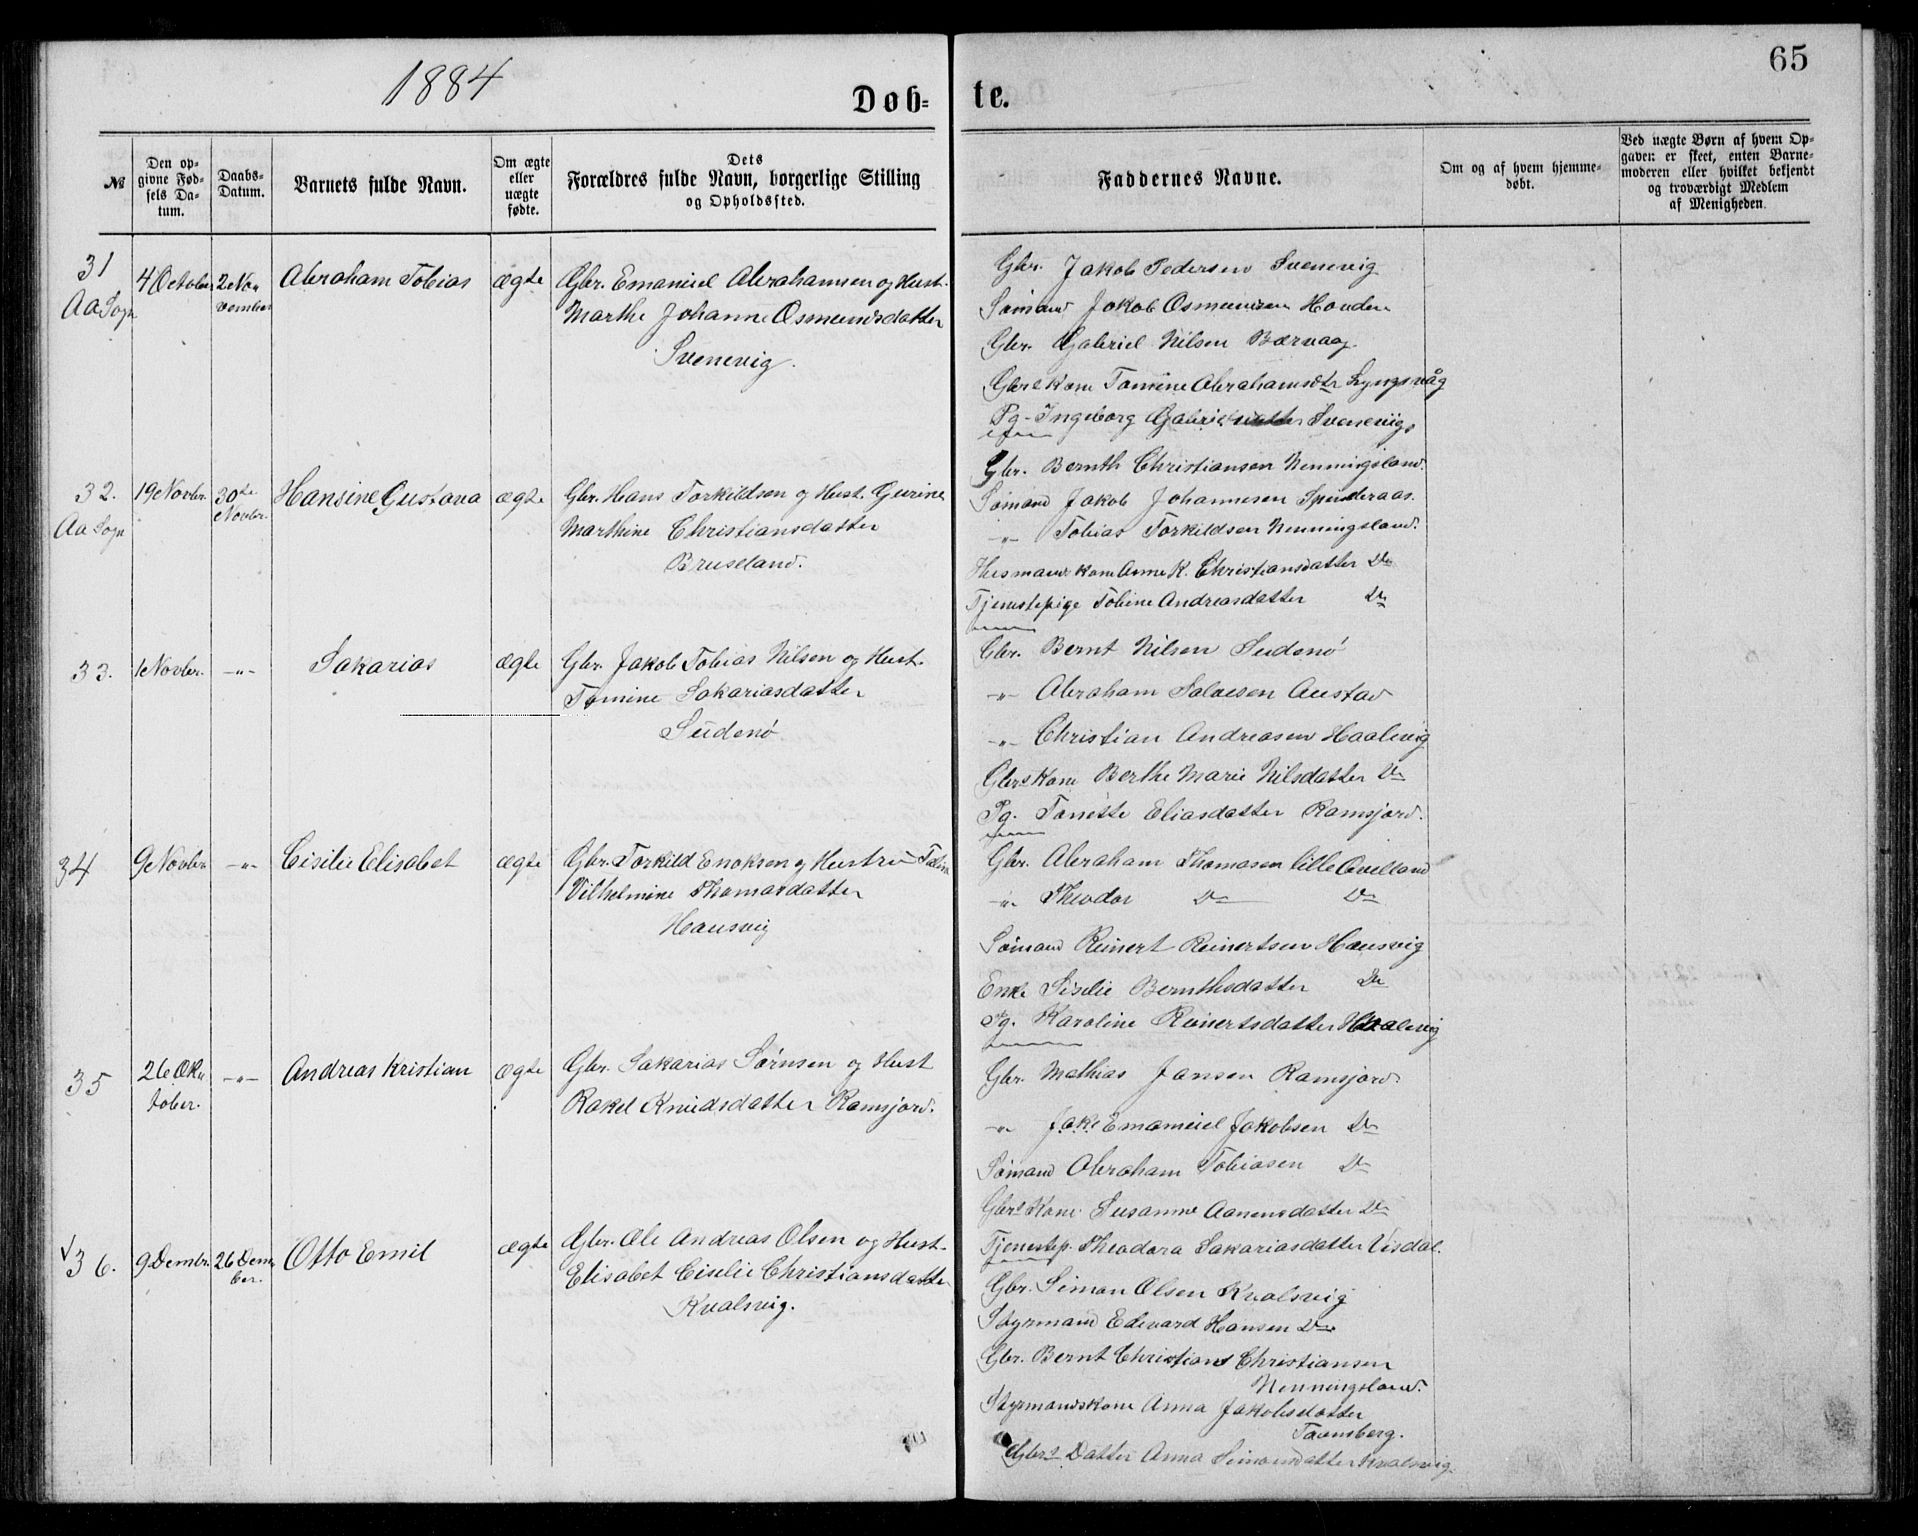 1884
Døb=
te.
65
№
Den op-
givne Fød-
sels Da-
tum.
Daabs-
Datum.
Barnets fulde Navn.
Om ægte
eller
uægte
fødte.
Dets
Forældres fulde Navn, borgerlige Stilling
og Opholdssted.
Faddernes Navne.
Om og af hvem hjemme-
døbt.
Ved uægte Børn af hvem Op-
gaven er skeet, enten Barne-
moderen eller hvilket bekjendt
og troværdigt Medlem
af Menigheden.
31
Aa Sogn
4 October
2 No-
vember
Abraham Tobias
ægte
Gbr. Emanuel Abrahamsen og Hust.
Marthe Johanne Osmundsdatter
Svenevig.
Gbr. Jakob Pedersen Svenevig
Sømand Jakob Osmundsen Houden
Gbr. Gabriel Nilsen Bærvaag.
Gbrs kone Tomine Abrahamsdtr Lyngsvåg
Pg- Ingeborg Svenevig
32.
Aa Sogn
19 Novbr.
30te
Novbr.
Hansine Gustava
ægte
Gbr. Hans Torkildsen og Hust. Gurine
Marthine Christiansdatter
Bruseland.
Gbr. Bernth Christiansen Nenningsland.
Sømand Jakob Johannesen Spinderaas.
-"- Tobias Torkildsen Nenningsland.
Husmands kone Anne K. Christiansdatter Do
Tjenestepige Tobine Andreasdatter Do
33.
1 Novbr.
-"-
Sakarias
ægte
Gbr. Jakob Tobias Nilsen og Hust.
Tomine Sakariasdatter
Sudenø
Gbr. Bernt Nilsen Sudenø
-"- Abraham Salvesen Austad
-"- Christian Andreasen Haalevig
Gbrs Kone Berthe Marie Nilsdatter Do
Pg. Tonette Eliasdatter Ramsjord.
34
9 Novbr
-"-
Cisilie Elisabet
ægte
Gbr. Torkild Enoksen og Hustru
Vilhelmine Thomasdatter
Hausvig
Gbr. Abraham Thomasen lille Qvelland
-"- Theodor Do Do
Sømand Reinert Reinertsen Hausvig
Enke Siselie Bernthsdatter Do
Pg. Karoline Reinertsdatter Haalevig
35
26 Ok-
tober.
-"-
Andreas Kristian
ægte
Gbr. Sakarias Sørnsen og Hust
Rakel Knudsdatter Ramsjord.
Gbr. Mathias Jansen Ramsjord
-"- Jak. Emanuel Jakobsen Do
Sømand Abraham Tobiasen Do
Gbrs Kone Susanne Aanensdatter Do
Tjenestep. Theodora Sakariasdatter Visdal.
√
36.
9 Dembr.
26 Dem-
ber.
Otto Emil
ægte
Gbr. Ole Andreas Olsen og Hust.
Elisabet Ciselie Christiansdatter
Kvalsvig.
Gbr. Simon Olsen Kvalsvig
Styrmand Edevard Hansen Do
Gbr. Bernt Christians Christiansen
Nenningsland.
Styrmandskone Anna Jakobsdatter
Gbrs Datter Anna Simonsdatter Kvalsvig